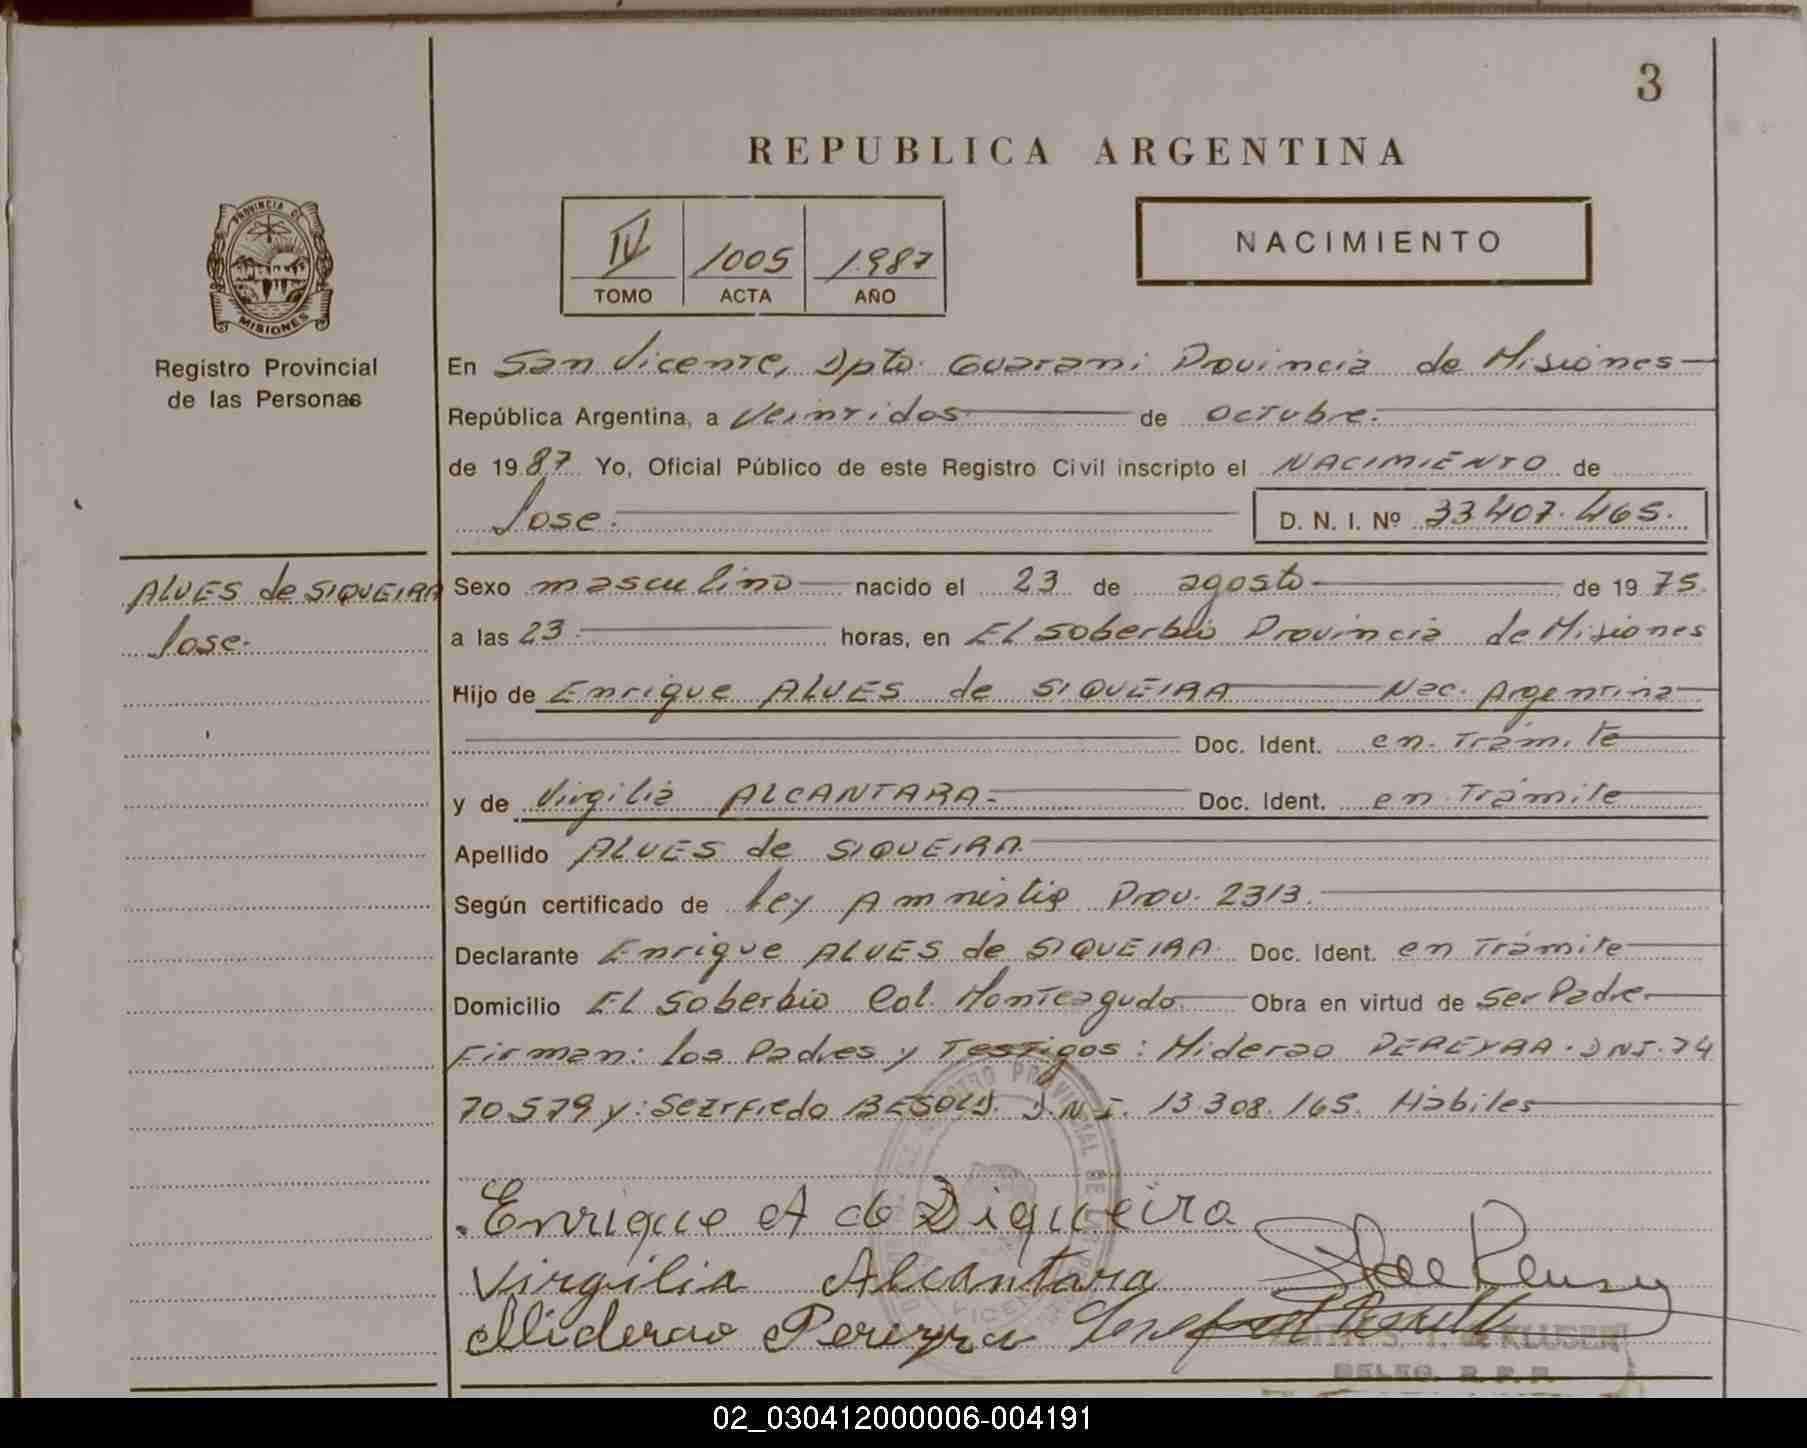 3
REPUBLICA ARGENTINA
PROVINCIA DE
MISIONES
Registro Provincial
de las Personas
IV 1005 1987
TOMO ACTA AÑO
NACIMIENTO
En San Vicente, Dpto. Guarani Provincia de Misiones
República Argentina, a Veintidos de Octubre.
de 1987 Yo, Oficial Público de este Registro Civil inscripto el NACIMIENTO de
Jose. D. N. I. Nº 33.407.465.
ALVES de SIQUEIRA
Jose.
Sexo masculino nacido el 23 de agosto de 1975.
a las 23 horas, en El Soberbio Provincia de Misiones
Hijo de Enrique ALVES de SIQUEIRA Nac. Argentina
Doc. Ident. en Trámite
y de Virgilia ALCANTARA. Doc. Ident. en Trámite
Apellido ALVES de SIQUEIRA
Según certificado de Ley Amnistia Prov. 2313.
Declarante Enrique ALVES de SIQUEIRA. Doc. Ident. en Trámite
Domicilio El Soberbio Col. Monteagudo. Obra en virtud de Ser Padre
Firman: los Padres y Testigos: Miderao PEREYRA. DNI. 74
70.579 y: D.N.I. 13.308.165. Hábiles
Enrique A de Siqueira
Virgilia Alcantara
Miderao Pereyra
02_030412000006-004191